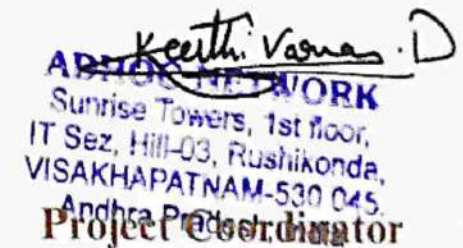 Keerthi Varman . D
ADHOC NETWORK
Sunrise Towers, 1st floor,
IT Sez, Hill-03, Rushikonda,
VISAKHAPATNAM-530 045.
Andhra Pradesh,
Project Coordinator